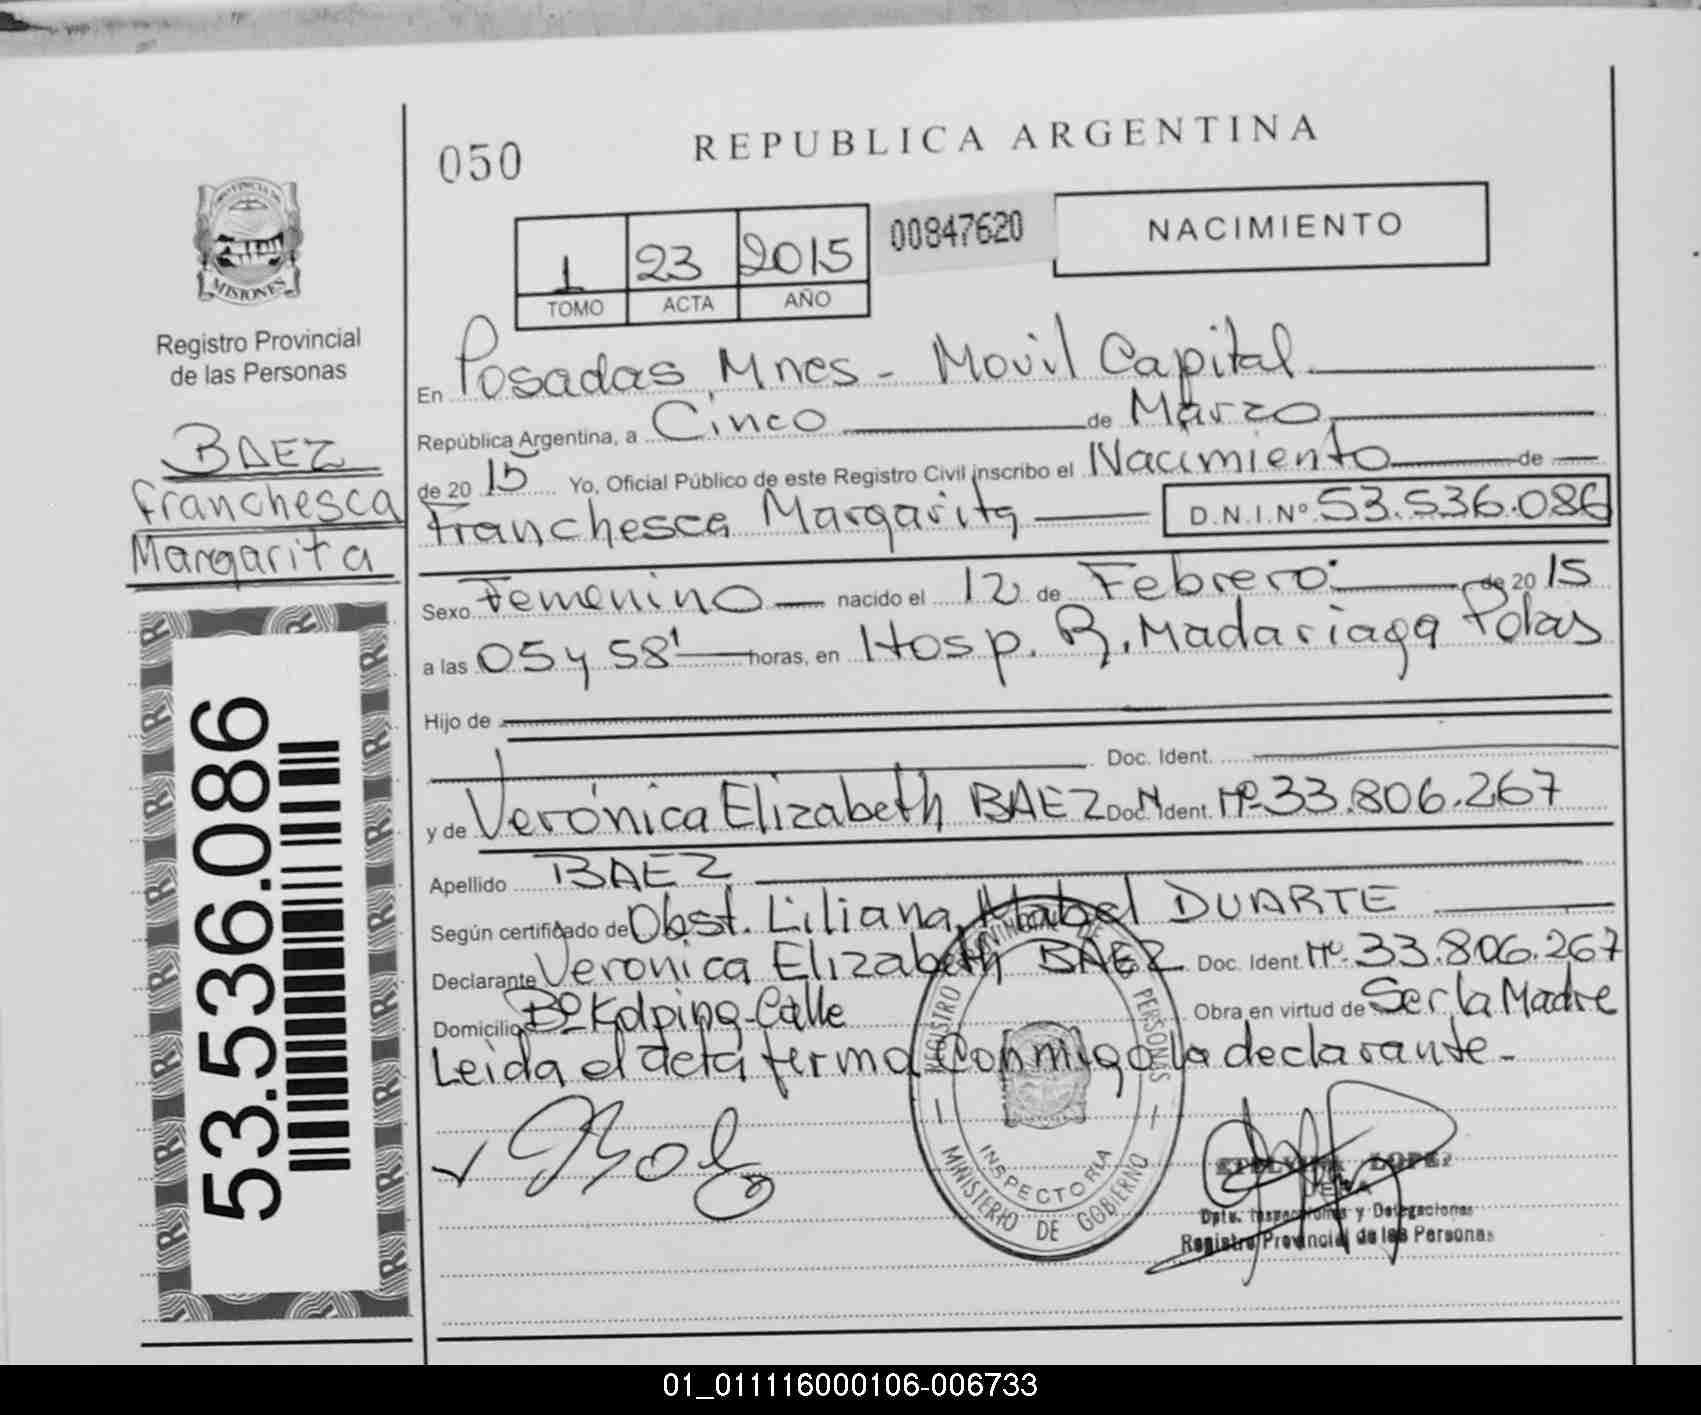 050
REPUBLICA ARGENTINA
PROVINCIA DE
MISIONES
Registro Provincial
de las Personas
BAEZ
Franchesca
Margarita
53.536.086
1 23 2015
TOMO ACTA AÑO
00847620
NACIMIENTO
En Posadas Mnes - Movil Capital.
República Argentina, a Cinco de Marzo
de 20 15 Yo, Oficial Público de este Registro Civil inscribo el Nacimiento de
Franchesca Margarita D.N.I.Nº 53.536.086
Sexo Femenino nacido el 12 de Febrero de 20 15
a las 05 y 58' horas, en Hosp. R. Madariaga Pdas
Hijo de
Doc. Ident.
y de Verónica Elizabeth BAEZ Doc. Ident. Nº 33.806.267
Apellido BAEZ
Según certificado de Obst. Liliana Mabel DUARTE
Declarante Veronica Elizabeth BAEZ Doc. Ident. Nº 33.806.267
Domicilio Bº Kolping-Calle Obra en virtud de Ser la Madre
Leida el acta firma Conmigo la declarante.-
REGISTRO PROVINCIAL DE LAS PERSONAS
INSPECTORIA
MINISTERIO DE GOBIERNO
LOPEZ
JEFA
Dpto. Inspecciones y Delegaciones
Registro Provincial de las Personas
01_011116000106-006733